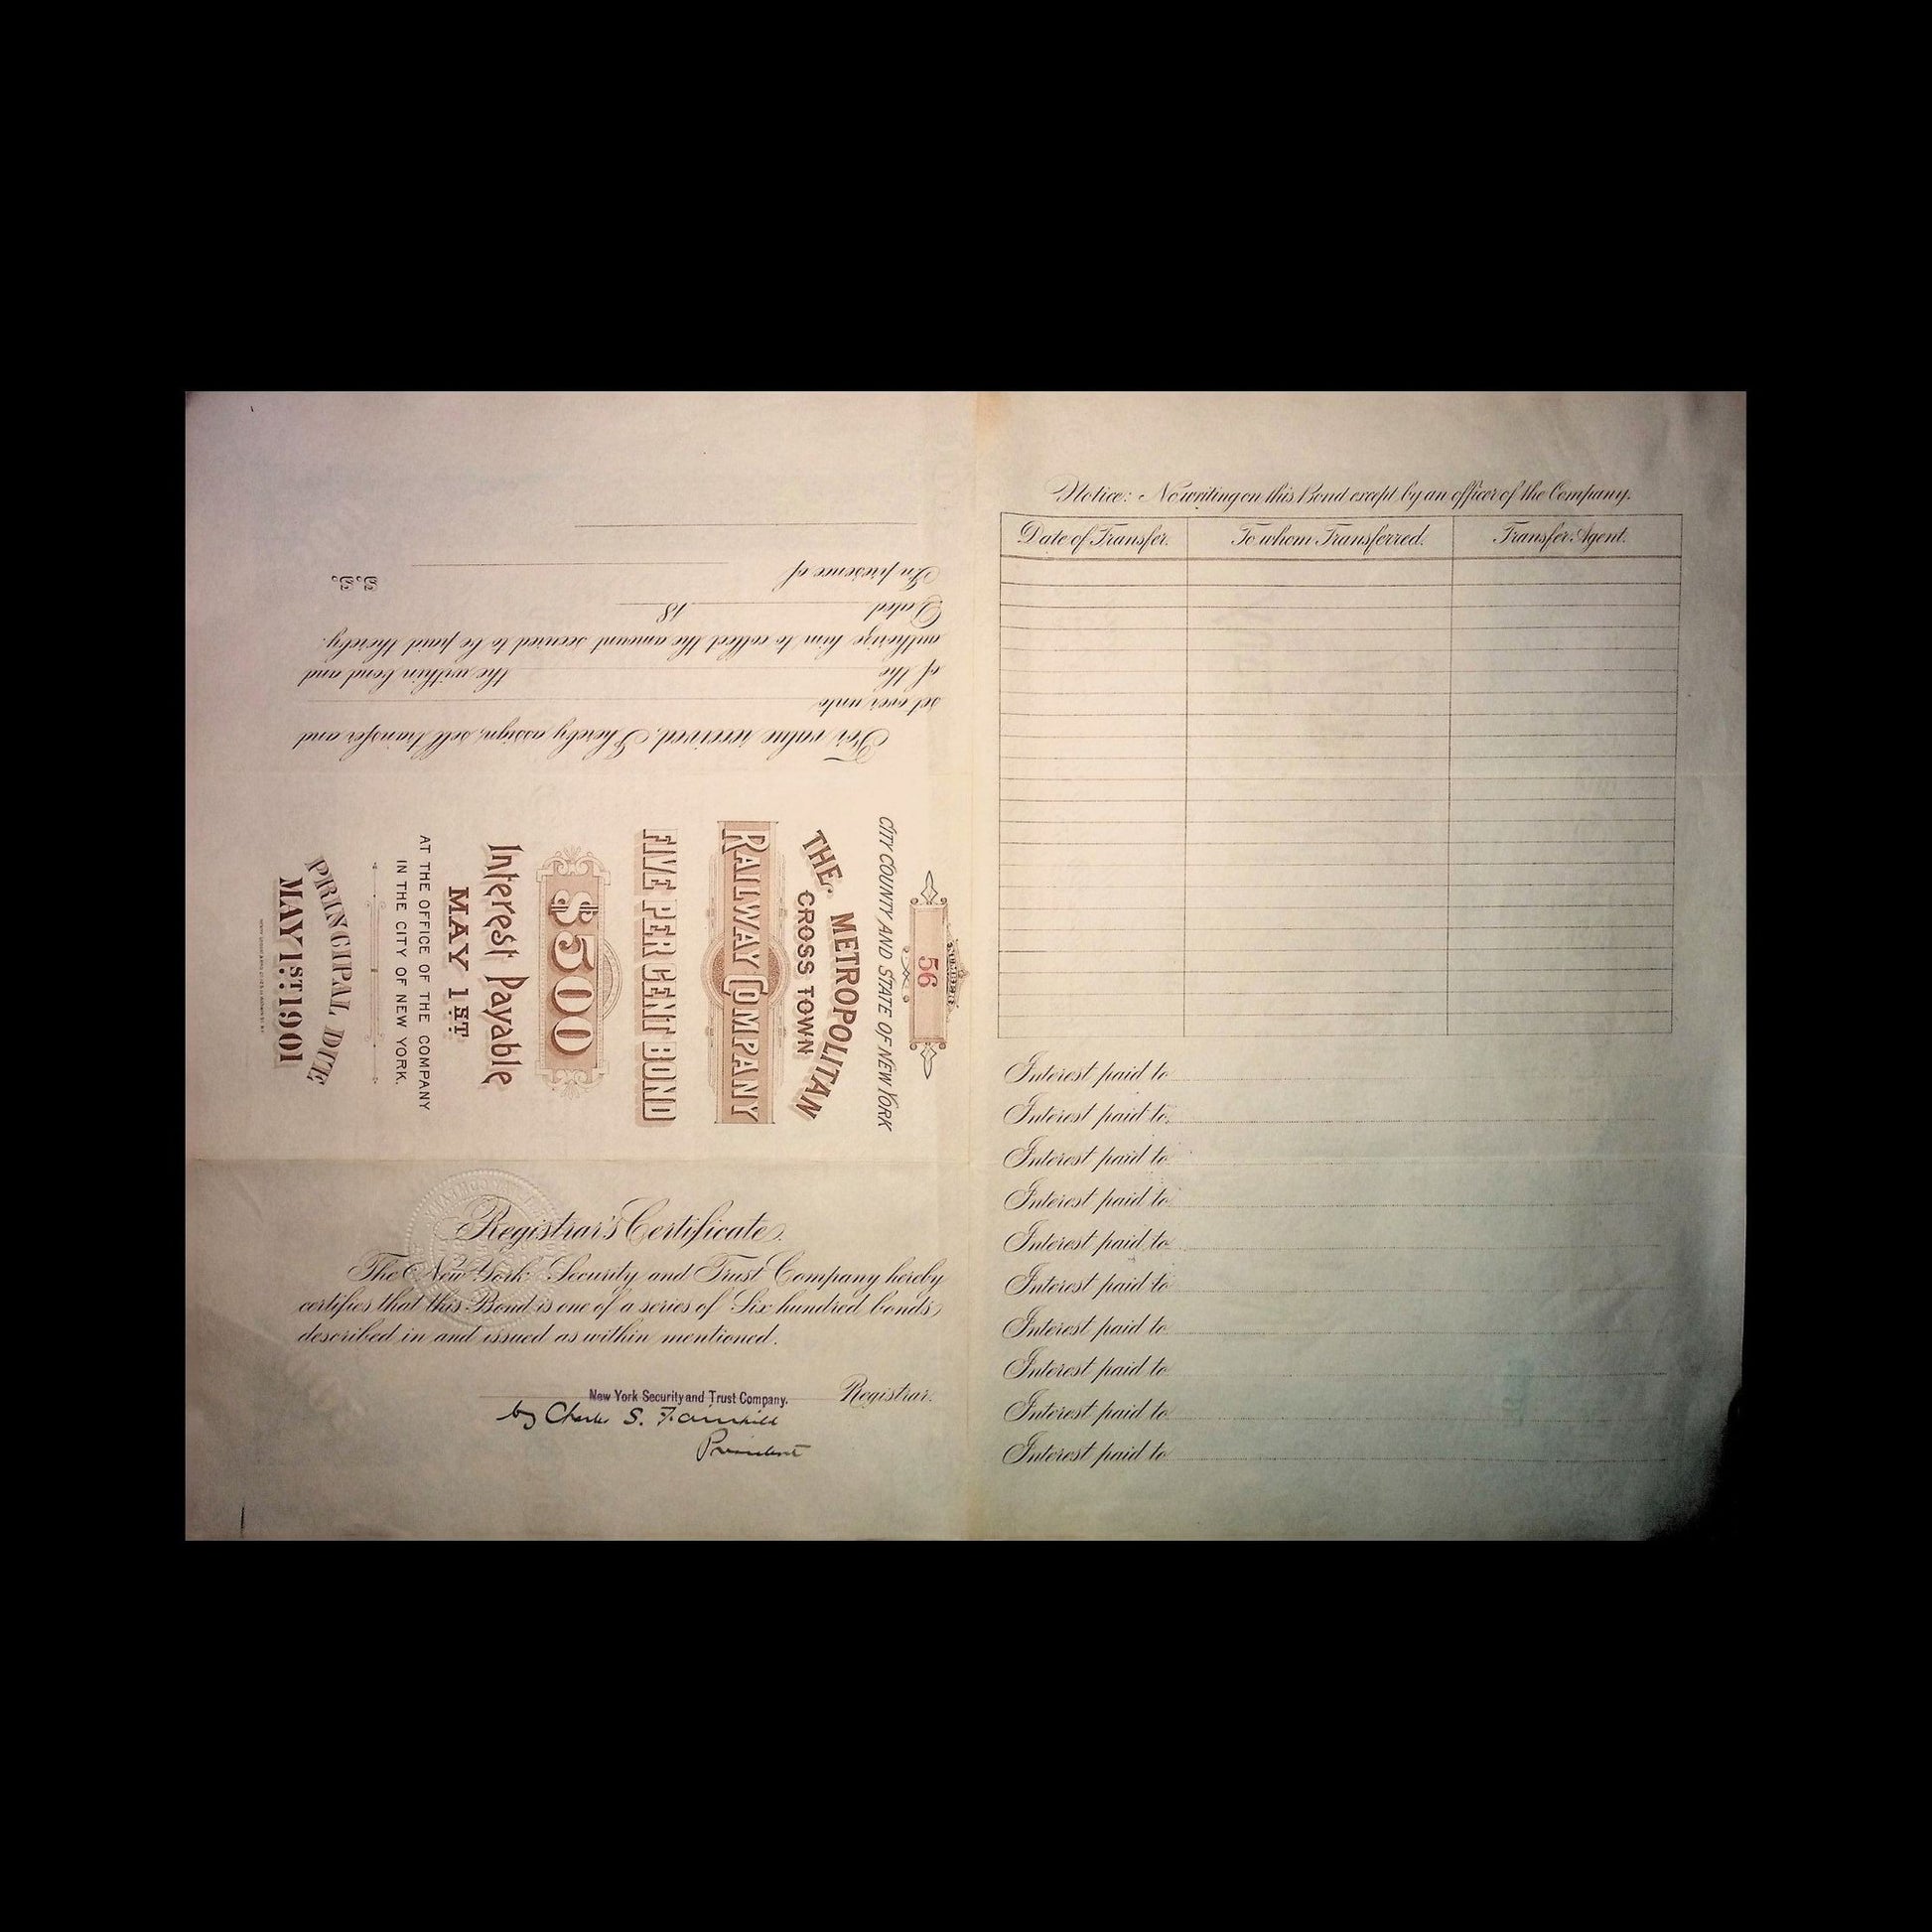 For value received, I hereby assign, sell, transfer and
set over unto
of the the within bond and
authorize him to collect the amount secured to be paid thereby.
Dated 18
In presence of
L.S.
NUMBER
56
CITY COUNTY AND STATE OF NEW YORK
THE METROPOLITAN
CROSS TOWN
RAILWAY COMPANY
FIVE PER CENT BOND
$500
Interest Payable
MAY 1ST
AT THE OFFICE OF THE COMPANY
IN THE CITY OF NEW YORK.
PRINCIPAL DUE
MAY 1ST 1901
Registrar's Certificate.
The New York Security and Trust Company hereby
certifies that this Bond is one of a series of Six hundred bonds
described in and issued as within mentioned.
New York Security and Trust Company. Registrar.
by Charles S. Fairchild
President
Notice: No writing on this Bond except by an officer of the Company.
Date of Transfer. To whom Transferred. Transfer Agent.
Interest paid to
Interest paid to
Interest paid to
Interest paid to
Interest paid to
Interest paid to
Interest paid to
Interest paid to
Interest paid to
Interest paid to